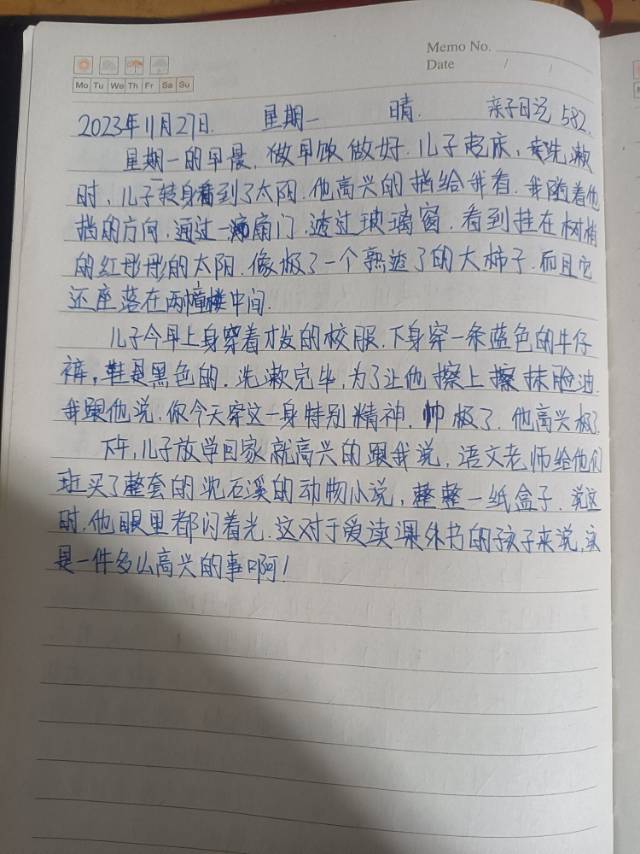 Memo No.
Date / /
Mo Tu We Th Fr Sa Su
2023年11月27日. 星期一 晴. 亲子日记 582.
星期一的早晨,做早饭做好.儿子起床,洗漱
时,儿子转身看到了太阳.他高兴的指给我看.我随着他
指的方向.通过一扇门.透过玻璃窗.看到挂在树梢
的红彤彤的太阳.像极了一个熟透了的大柿子.而且它
还座落在两幢楼中间.
儿子今早上身穿着才发的校服.下身穿一条蓝色的牛仔
裤,鞋是黑色的.洗漱完毕,为了让他擦上擦抹脸油.
我跟他说.你今天穿这一身特别精神.帅极了.他高兴极了
下午,儿子放学回家就高兴的跟我说,语文老师给他们
班买了整套的沈石溪的动物小说,整整一纸盒子.说这
时.他眼里都闪着光.这对于爱读课外书的孩子来说,实
是一件多么高兴的事啊!